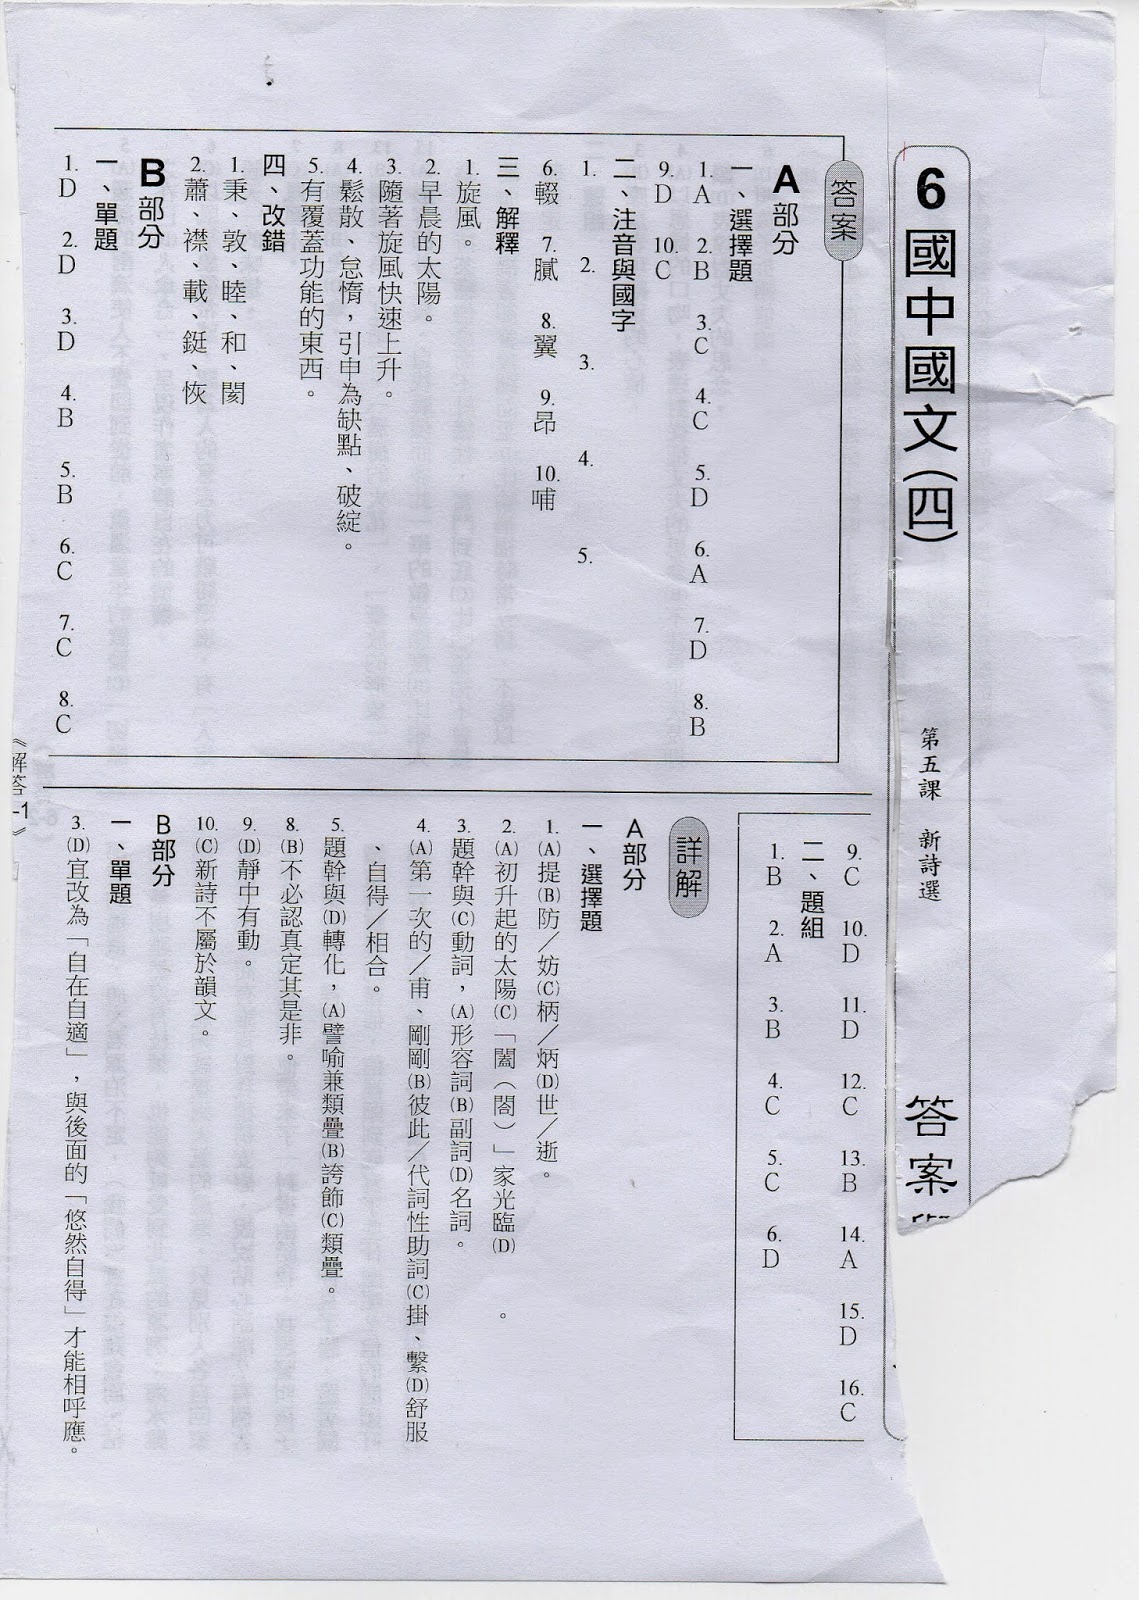 6 國中國文(四) 第五課 新詩選 答案
答案
A部分
一、選擇題
1. A 2. B 3. C 4. C 5. D 6. A 7. D 8. B
9. D 10. C
二、注音與國字
1. 2. 3. 4. 5.
6. 輟 7. 膩 8. 翼 9. 昂 10. 哺
三、解釋
1. 旋風。
2. 早晨的太陽。
3. 隨著旋風快速上升。
4. 鬆散、怠惰，引申為缺點、破綻。
5. 有覆蓋功能的東西。
四、改錯
1. 秉、敦、睦、和、闔
2. 蕭、襟、載、鋌、恢
B部分
一、單題
1. D 2. D 3. D 4. B 5. B 6. C 7. C 8. C
9. C 10. D 11. D 12. C 13. B 14. A 15. D 16. C
二、題組
1. B 2. A 3. B 4. C 5. C 6. D
詳解
A部分
一、選擇題
1. (A)提(B)防／妨(C)柄／炳(D)世／逝。
2. (A)初升起的太陽(C)「闔(閤)」家光臨(D) 。
3. 題幹與(C)動詞，(A)形容詞(B)副詞(D)名詞。
4. (A)第一次的／甫、剛剛(B)彼此／代詞性助詞(C)掛、繫(D)舒服
、自得／相合。
5. 題幹與(D)轉化，(A)譬喻兼類疊(B)誇飾(C)類疊。
8. (B)不必認真定其是非。
9. (D)靜中有動。
10. (C)新詩不屬於韻文。
B部分
一、單題
3. (D)宜改為「自在自適」，與後面的「悠然自得」才能相呼應。
《解答-1》